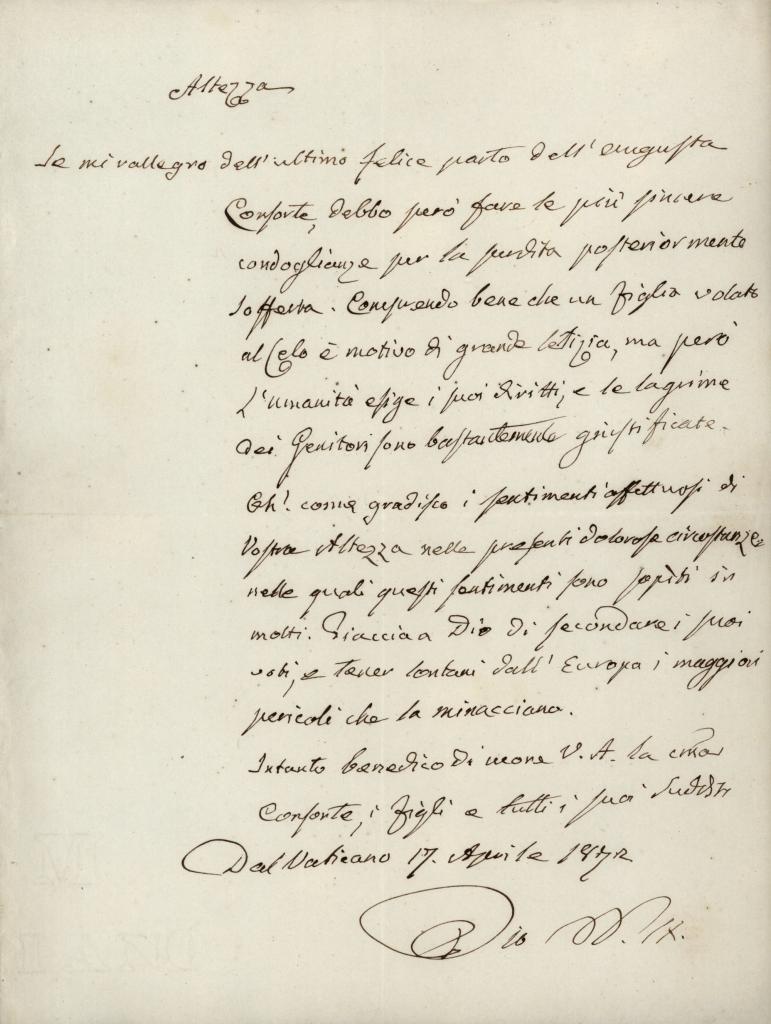 Altezza
Se mi rallegro dell'ultimo felice parto dell'augusta
Consorte, debbo però fare le più sincere
condoglianze per la perdita posteriormente
sofferta. Comprendo bene che un figlio volato
al Celo è motivo di grande letizia, ma però
L'umanità esige i suoi diritti, e le lagrime
dei Genitori sono bastantemente giustificate.
Oh! come gradisco i sentimenti affettuosi di
Vostra Altezza nelle presenti dolorose circostanze
nelle quali questi sentimenti sono sopiti in
molti. Piaccia a Dio di secondare i suoi
voti, e tener lontani dall'Europa i maggiori
pericoli che la minacciano.
Intanto benedico di V. A. la
Consorte, i figli e tutti i suoi Sudditi
Dal Vaticano 17. Aprile 1872
Pio PP. IX.